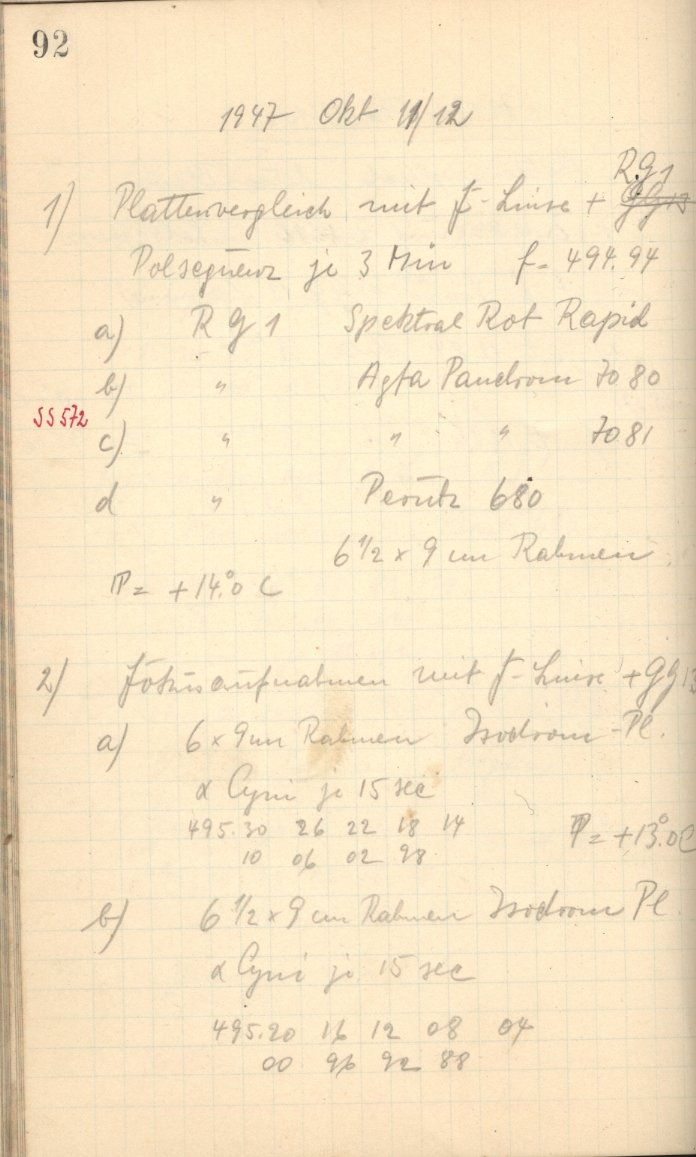 92
1947 Okt 11/12
RG1
1) Plattenvergleich mit F-Linse + GG13
Polsequenz je 3 Min f = 494.94
a) RG1 Spektral Rot Rapid
b) " Agfa Panchrom 7080
SS572
c) " " " 7081
d " Perutz 680
6 1/2 x 9 cm Rahmen
T = +14.°0 C
2) Fokusaufnahmen mit F-Linse + GG13
a) 6 x 9 cm Rahmen Isochrom-Pl.
α Cygni je 15 sec
495.30 26 22 18 14
T = +13.°0 C
10 06 02 98
b) 6 1/2 x 9 cm Rahmen Isochrom Pl
α Cygni je 15 sec
495.20 16 12 08 04
00 96 92 88